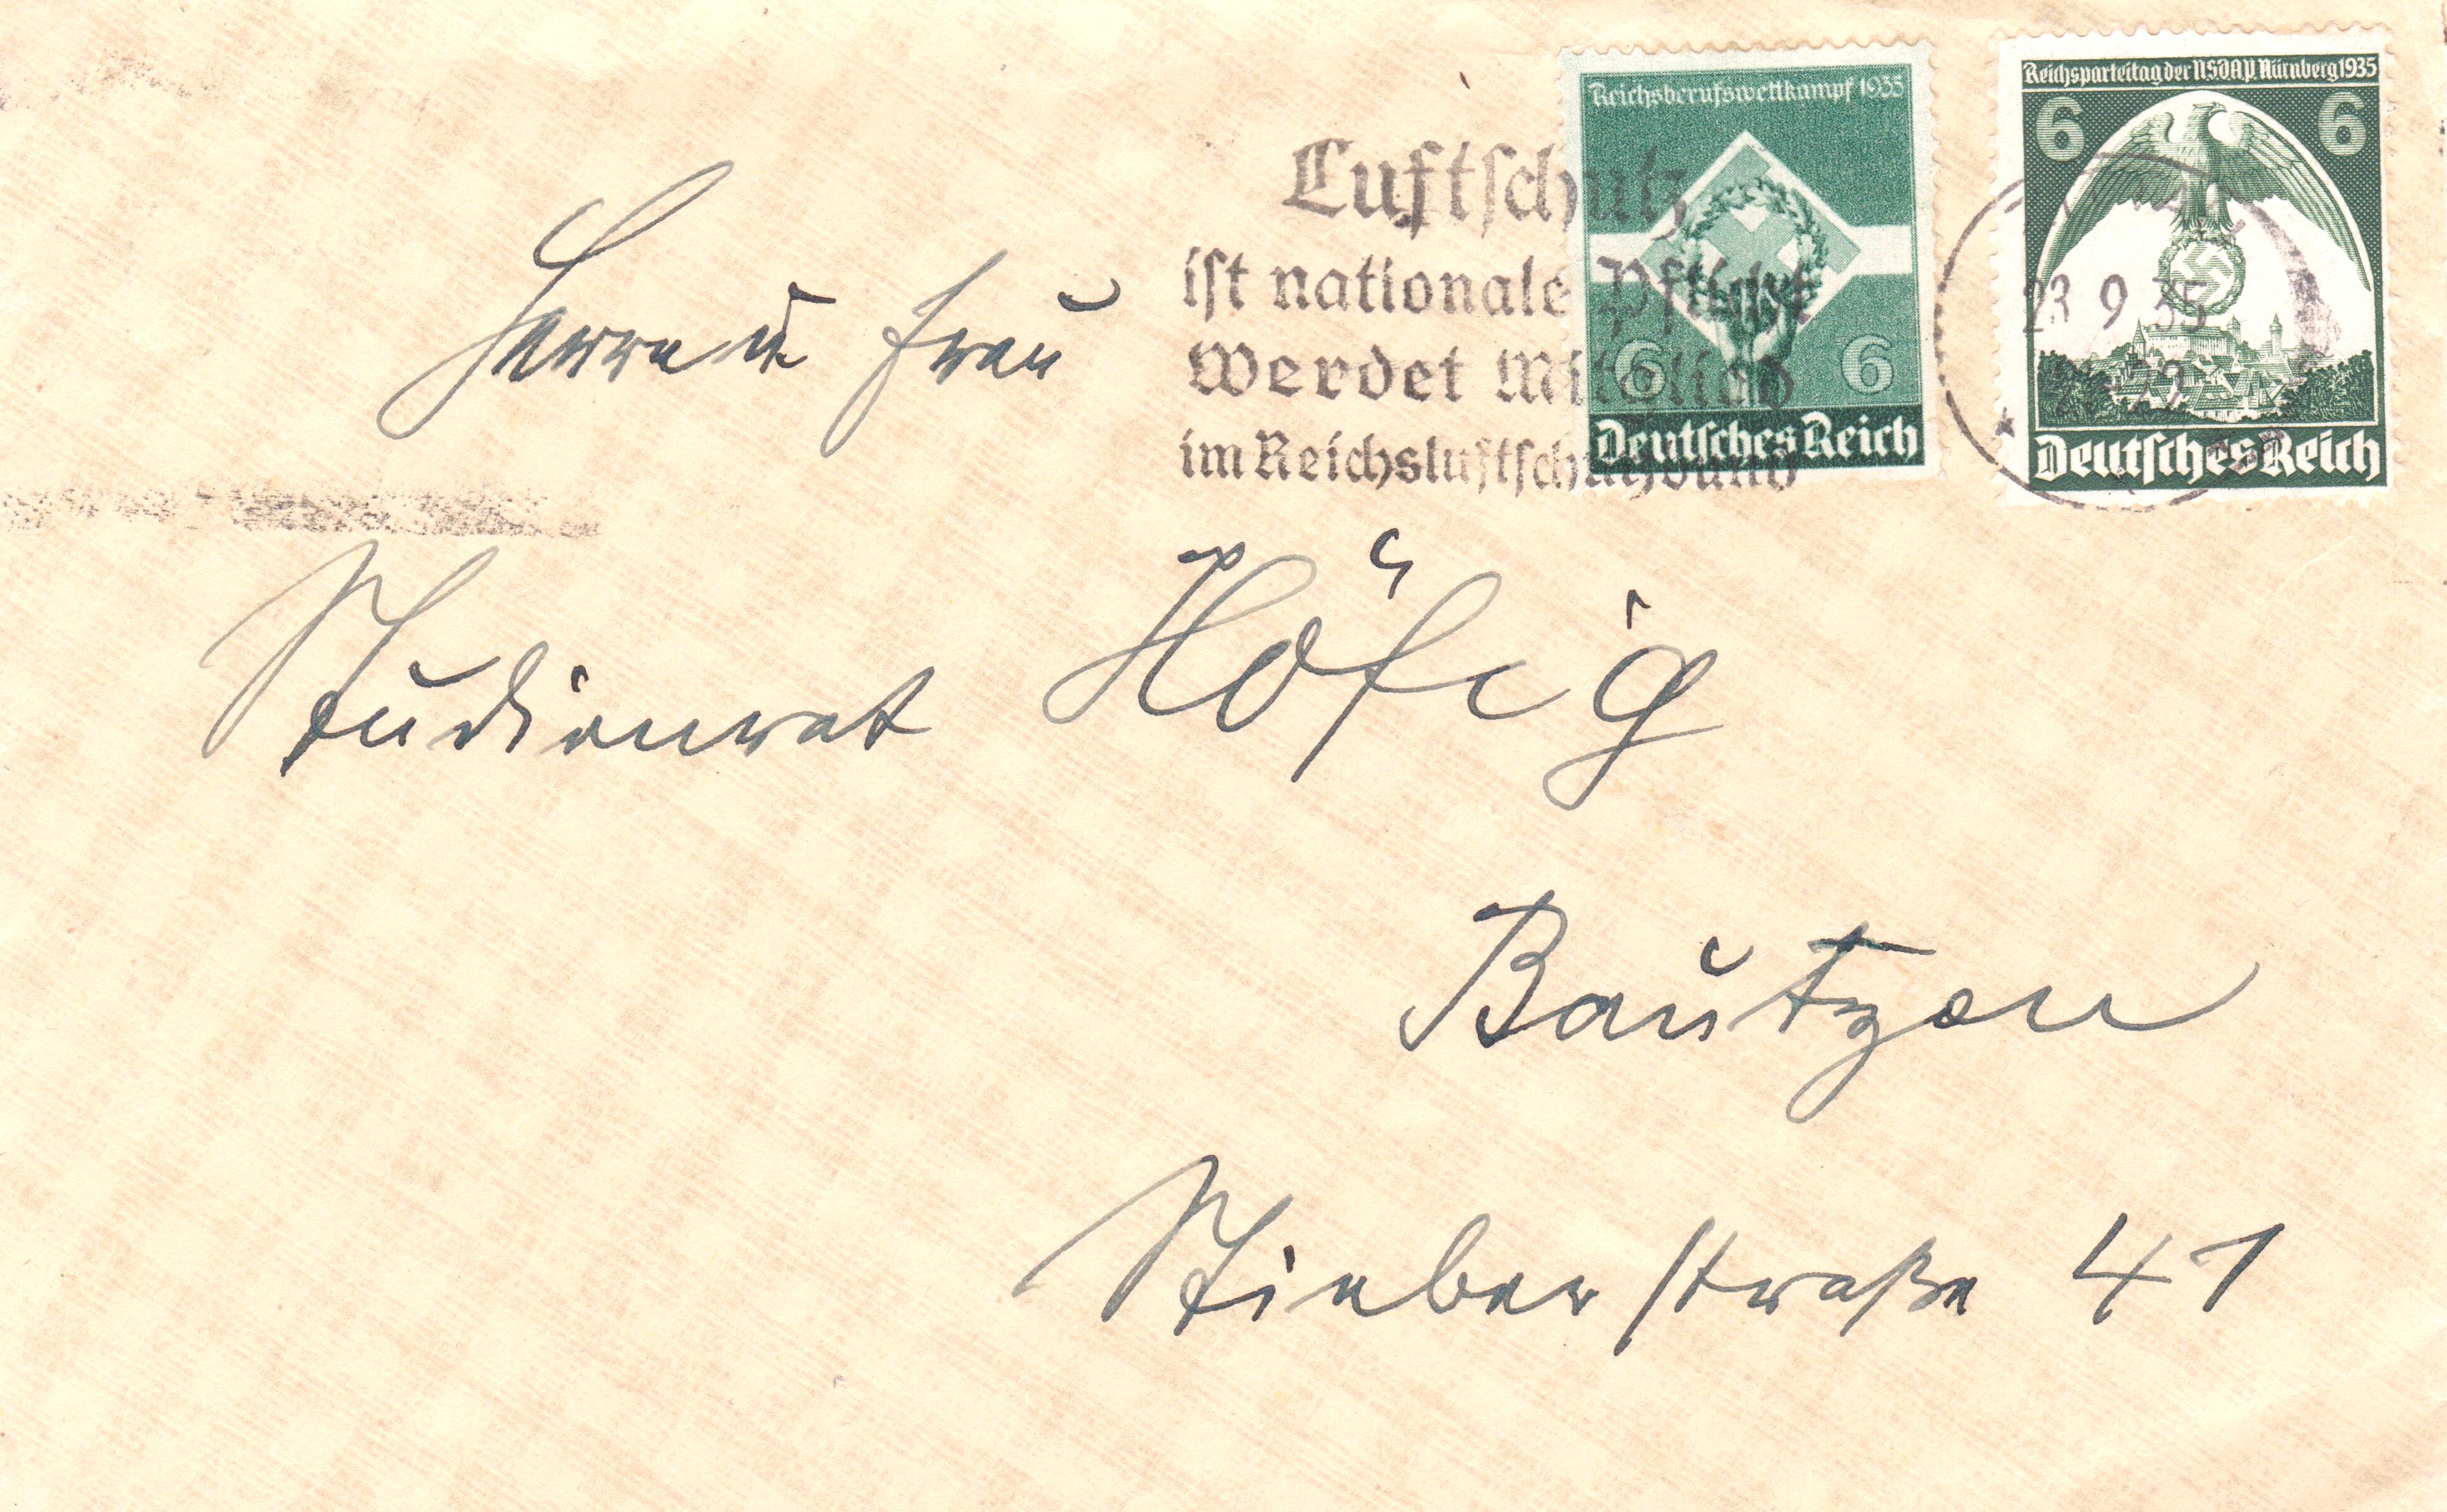 Reichsberufswettkampf 1935
6 6
Deutsches Reich
Reichsparteitag der NSDAP. Nürnberg 1935
6 6
Deutsches Reich
Luftschutz
ist nationale Pflicht
Werdet Mitglied
im Reichsluftschutzbund
23 9 35
Herrn u Frau
Studienrat Höfig
Bautzen
Stieberstraße 41